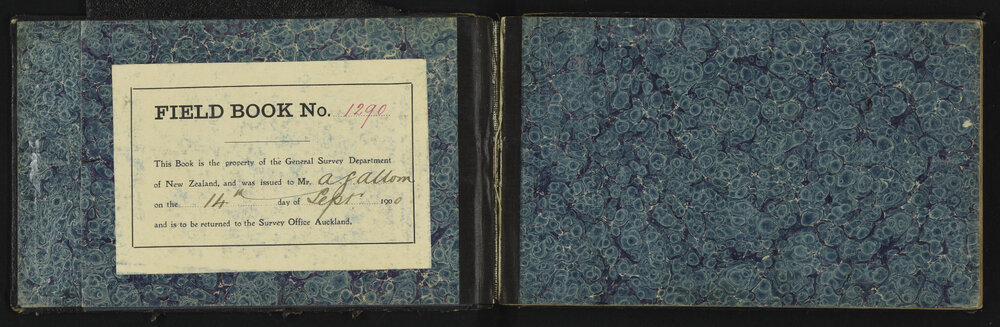 FIELD BOOK No. 1290
This Book is the property of the General Survey Department
of New Zealand, and was issued to Mr. A J Allom
on the 14th day of Sept 1900
and is to be returned to the Survey Office Auckland.